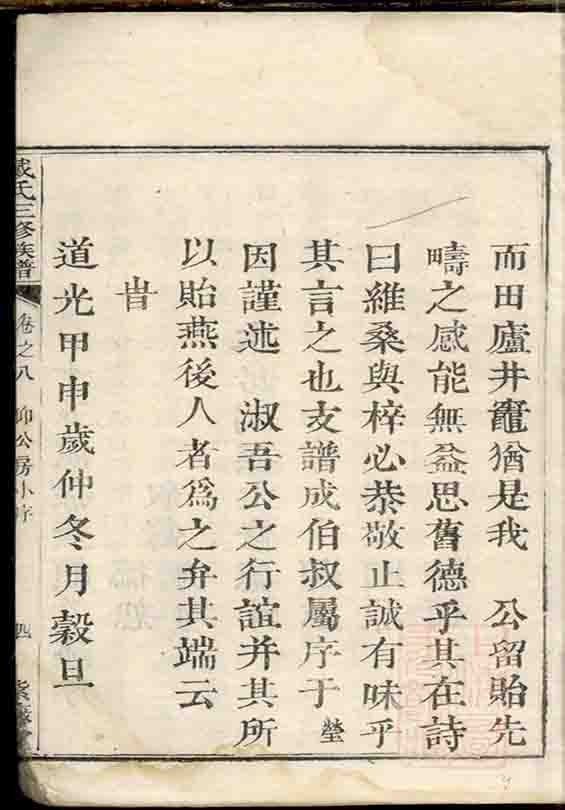 而田廬井竈猶是我 公留貽先
疇之感能無益思舊德乎其在詩
曰維桑與梓必恭敬止誠有味乎
其言之也支譜成伯叔屬序于瑩
因謹述 淑吾公之行誼并其所
以貽燕後人者爲之弁其端云
旹
道光甲申歲仲冬月穀旦
戴氏三修族譜 卷之八 仰公房小序 四